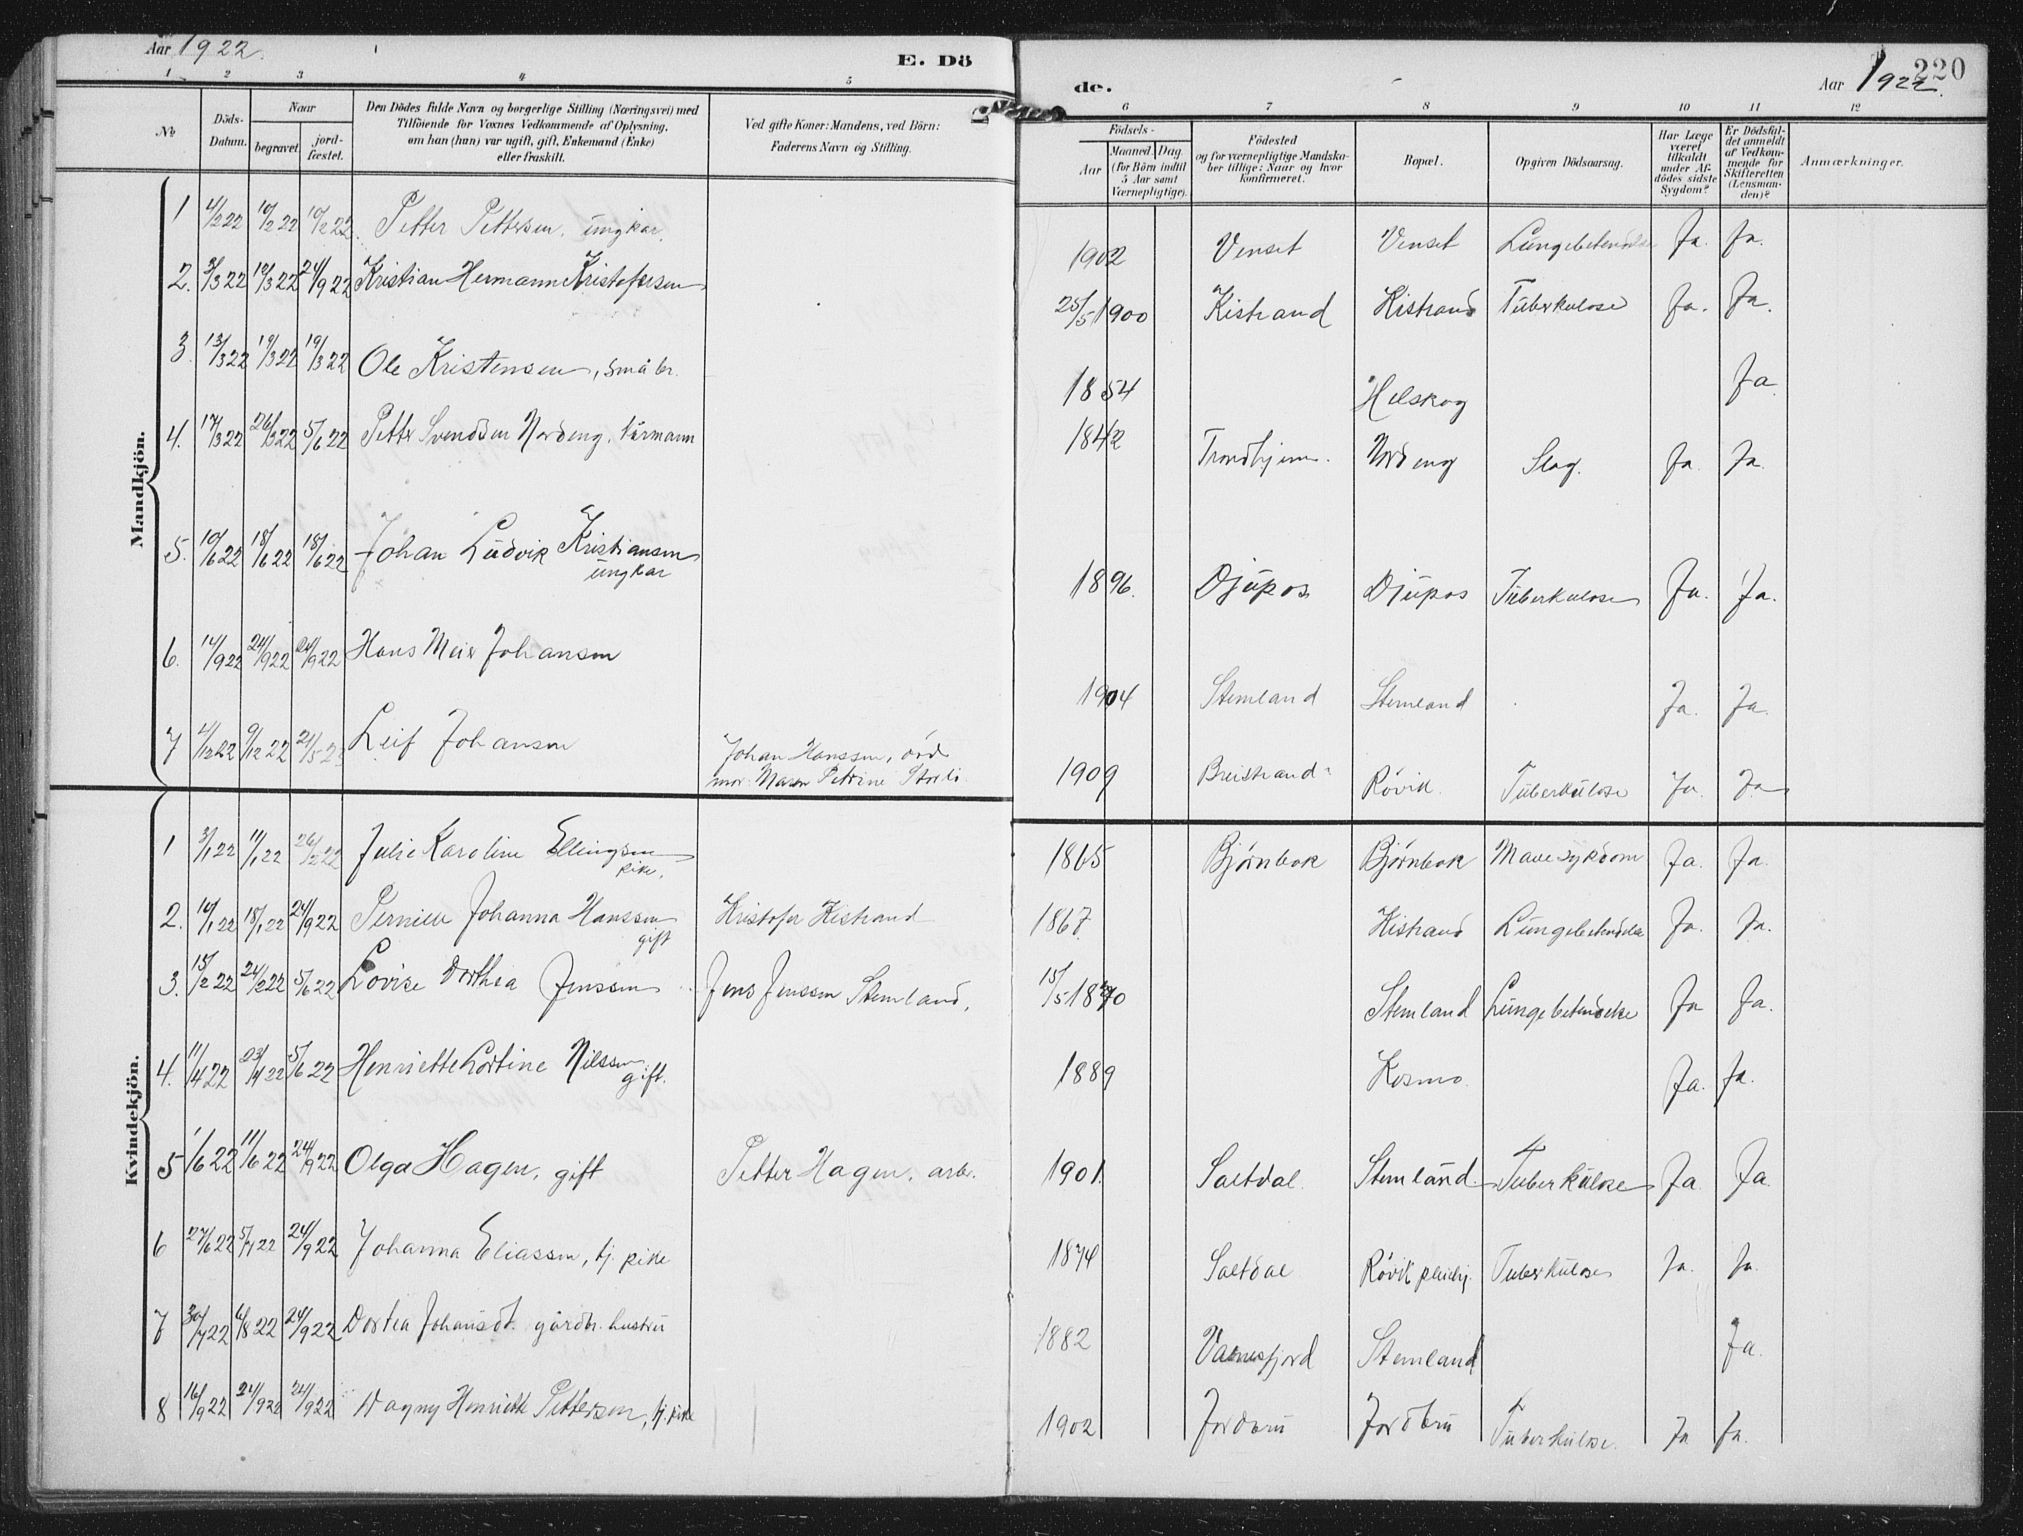 Aar 1922.
E. Dö
de.
Aar 1922.
220
1 2 3 4 5 6 7 8 9 10 11 12
No
Döds-Datum.
Naar
begravet.
jord-fæstet.
Den Dödes fulde Navn og borgerlige Stilling (Næringsvei) med
Tilföiende for Voxnes Vedkommende af Oplysning,
om han (hun) var ugift, gift, Enkemand (Enke)
eller fraskilt.
Ved gifte Koner: Mandens, ved Börn:
Faderens Navn og Stilling.
Födsels-
Aar
Maaned. Dag.
(for Börn indtil
5 Aar samt
Værnepligtige).
Födested
og for værnepligtige Mandska-
ber tillige: Naar og hvor
konfirmeret.
Bopæl.
Opgiven Dödsaarsag.
Har Læge
været
tilkaldt
under Af-
dödes sidste
Sygdom?
Er Dödsfal-
det anmeldt
af Vedkom-
mende for
Skifteretten
(Lensman-
den)?
Anmærkninger.
Mandkjön.
1 4/2 22 10/2 22 10/2 22 Petter Pettersen, ungkar. 1902 Venset Venset Lungebetendelse Ja. Ja.
2. 3/3 22 12/3 22 24/9 22 Kristian Hermann Kristofersen 25/5 1900 Kistrand Kistrand Tuberkulose Ja. Ja.
3. 13/3 22 19/3 22 19/3 22 Ole Kristensen, småbr. 1854 Helskog Ja.
4. 17/3 22 26/3 22 5/6 22 Petter Svendsen Nordeng, kårmann 1842 Trondhjem. Nordeng Slag. Ja. Ja.
5. 10/6 22 18/6 22 18/6 22 Johan Ludvik Kristiansen
ungkar 1896. Djupos Djupos Tuberkulose Ja. Ja.
6. 14/9 22 24/9 22 24/9 22 Hans Meier Johansen 1904 Stemland Stemland Ja. Ja.
7 4/12 22 9/12 22 21/5 23 Leif Johansen Johan Hanssen, död
mor: Maren Petrine 1909 Breistrand Røvik. Tuberkulose Ja. Ja
Kvindekjön.
1 3/1 22 11/1 22 26/2 22 Julie Karoline Ellingsen
pike. 1865 Bjørnbak Bjørnbak Mavesykdom Ja. Ja.
2. 10/1 22 18/1 22 24/9 22 Pernille Johanna Hanssen
gift Kristofer Kistrand 1867. Kistrand Lungebetendelse Ja. Ja.
3. 15/2 22 24/2 22 5/6 22 Lovise Dorthea Jenssen Jens Jenssen Stemland. 15/5 1870 Stemland Lungebetendelse Ja Ja.
4. 11/4 22 23/4 22 5/6 22 Henriette Lortine Nilssen
gift. 1889 Kosmo. Ja. Ja.
5 1/6 22 11/6 22 24/9 22 Olga Hagen, gift Petter Hagen. arb. 1901. Saltdal. Stemland. Tuberkulose Ja. Ja.
6 27/6 22 5/7 22 24/9 22 Johanna Eliassen, tj. pike 1874 Saltdal Røvik pleiehj. Tuberkulose Ja. Ja.
7 30/7 22 6/8 22 24/9 22 Dortea Johansdt. gårdbr. hustru 1882 Valnesfjord Stemland Ja.
8 16/9 22 24/9 22 24/9 22 Dagny Henriette Pettersen, tj. pike 1902 Jordbru Jordbru Tuberkulose. Ja Ja.